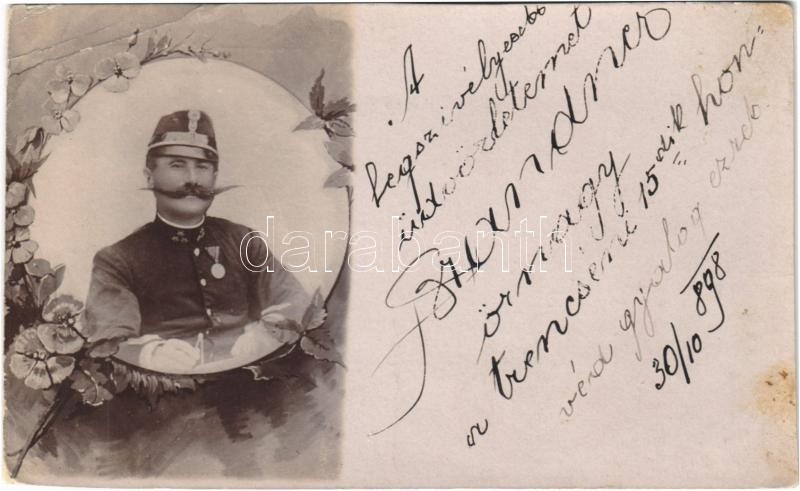 A
legszívélyesebb
üdvözletemet
őrnagy
a trencséni 15.dik hon=
véd gyalog ezred.
30/10 898
darabanth